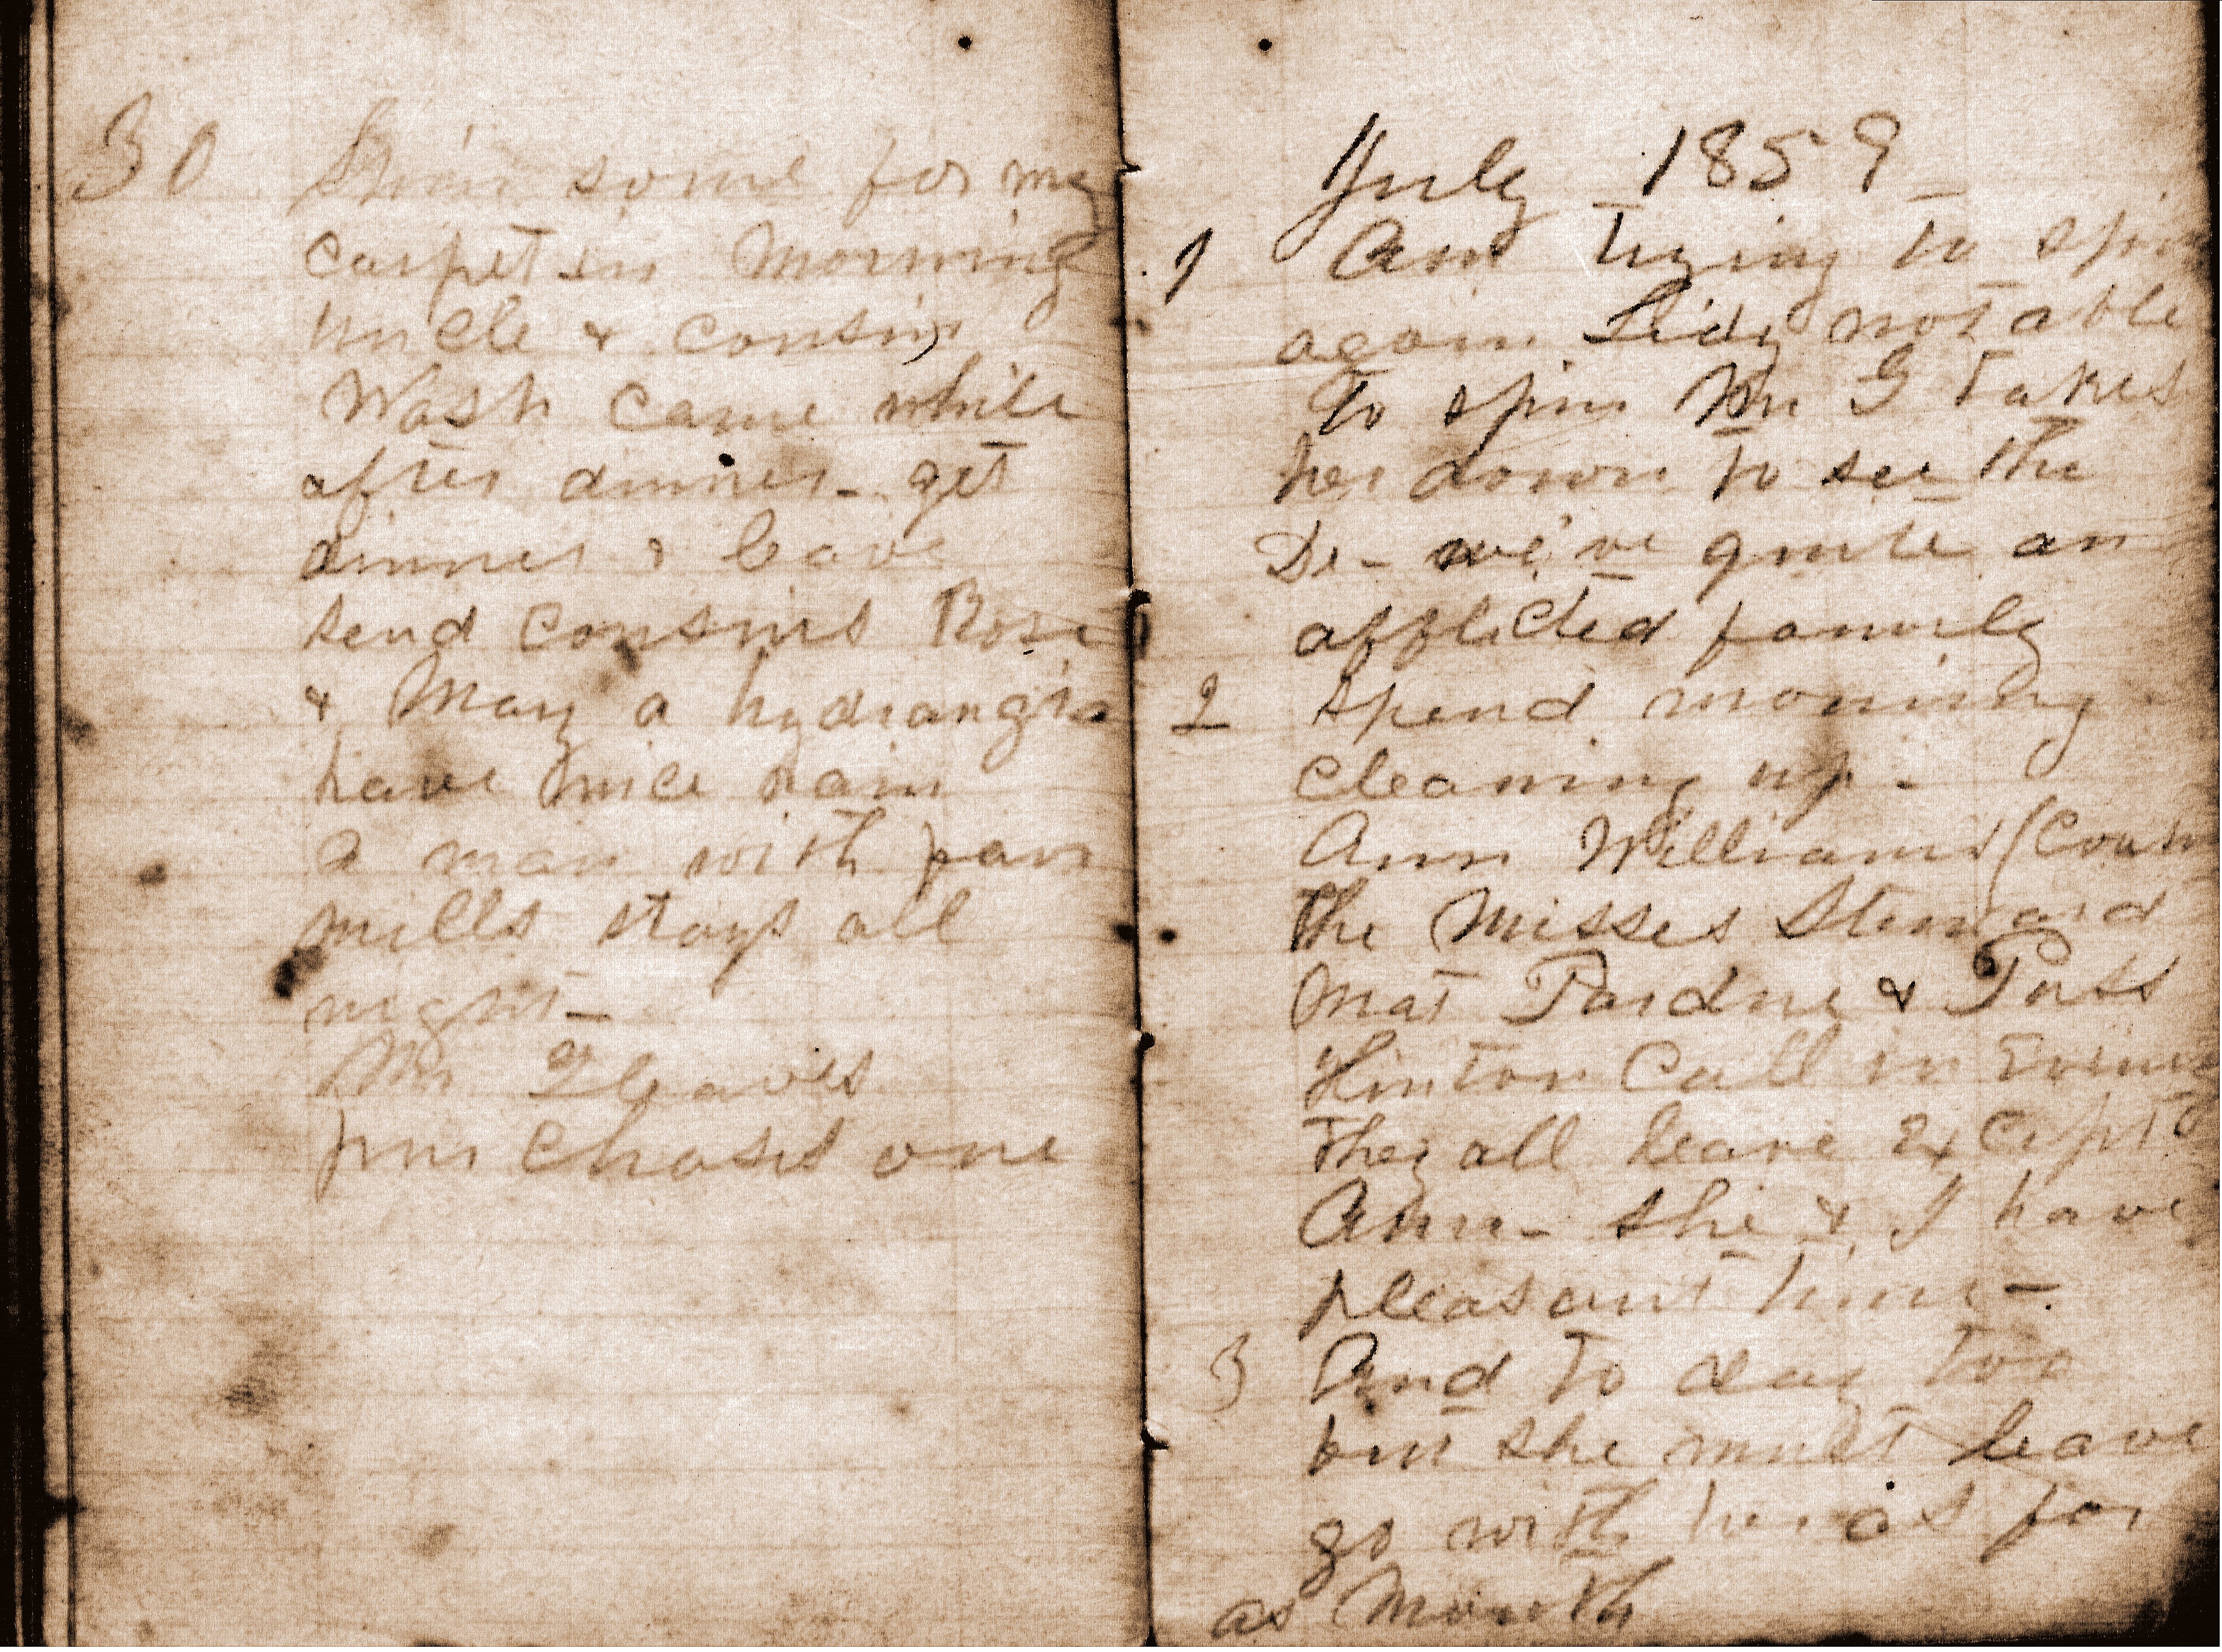 30 Spin some for my
carpet in Morning
Uncle & Cousin
Wash came while
after dinner - get
dinner & leave
send Cousins Rose
& Mary a hydrangia
have nice rain
a man with fan
mills stays all
night -
Mr G leaves
purchases one
July 1859
1 Am trying to spin
again Lidy not able
to spin Mr G takes
her down to see the
Dr - we've quite an
afflicted family
2 Spend morning
cleaning up -
Ann Williams (Cousin
the Misses Steward
Mat Pardue & Puss
Hinton Call in Evening
They all leave except
Ann - she & I have
pleasant time -
3 And to day too
but she must leave
go with her as far
as Mouth